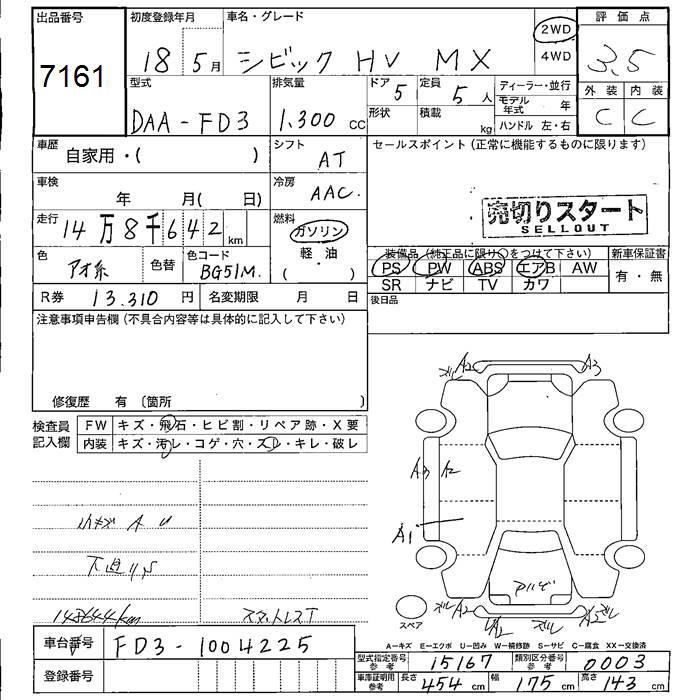 出品番号
7161
初度登録年月
18 5月
車名・グレード
シビック HV MX
2WD
4WD
評価点
3.5
型式
DAA-FD3
排気量
1.300 cc
ドア
5
定員
5人
形状
積載
kg
ディーラー・並行
モデル年式 年
ハンドル 左・右
外装 内装
C C
車歴
自家用・( )
シフト
AT
セールスポイント (正常に機能するものに限ります)
車検
年 月( 日)
冷房
AAC
売切りスタート
SELLOUT
走行
14万8千642km
燃料
ガソリン
軽・油
( )
色
アオ系
色替
色コード
BG51M
装備品 (純正品に限り○をつけて下さい)
PS PW ABS エアB AW
SR ナビ TV カワ
新車保証書
有・無
R券 13.310 円
名変期限 月 日
後日品
注意事項申告欄 (不具合内容等は具体的に記入して下さい)
修復歴 有 (箇所 )
検査員
記入欄
FW キズ・飛石・ヒビ割・リペア跡・X要
内装 キズ・汚レ・コゲ・穴・スレ・キレ・破レ
小キズ A U
下廻りS
148644km
A2
A3
A3 A2
A1
A2
スペア
A-キズ E-エクボ U-凹み W-補修跡 S-サビ C-腐食 XX-交換済
車台番号
FD3-1004225
登録番号
型式指定番号 参考 15167
類別区分番号 参考 0003
車庫証明用 参考 長さ 454 cm 幅 175 cm 高さ 143 cm